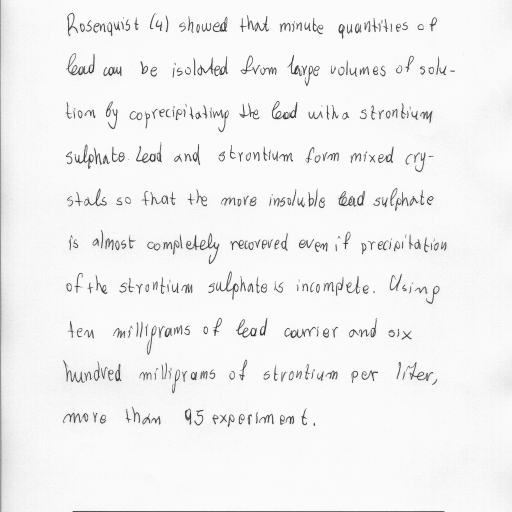 Rosenquist (4) showed that minute quantities of
lead can be isolated from large volumes of solu-
tion by coprecipitating the lead with a strontium
sulphate. Lead and strontium form mixed cry-
stals so that the more insoluble lead sulphate
is almost completely recovered even if precipitation
of the strontium sulphate is incomplete. Using
ten milligrams of lead carrier and six
hundred milligrams of strontium per liter,
more than 95 experiment.